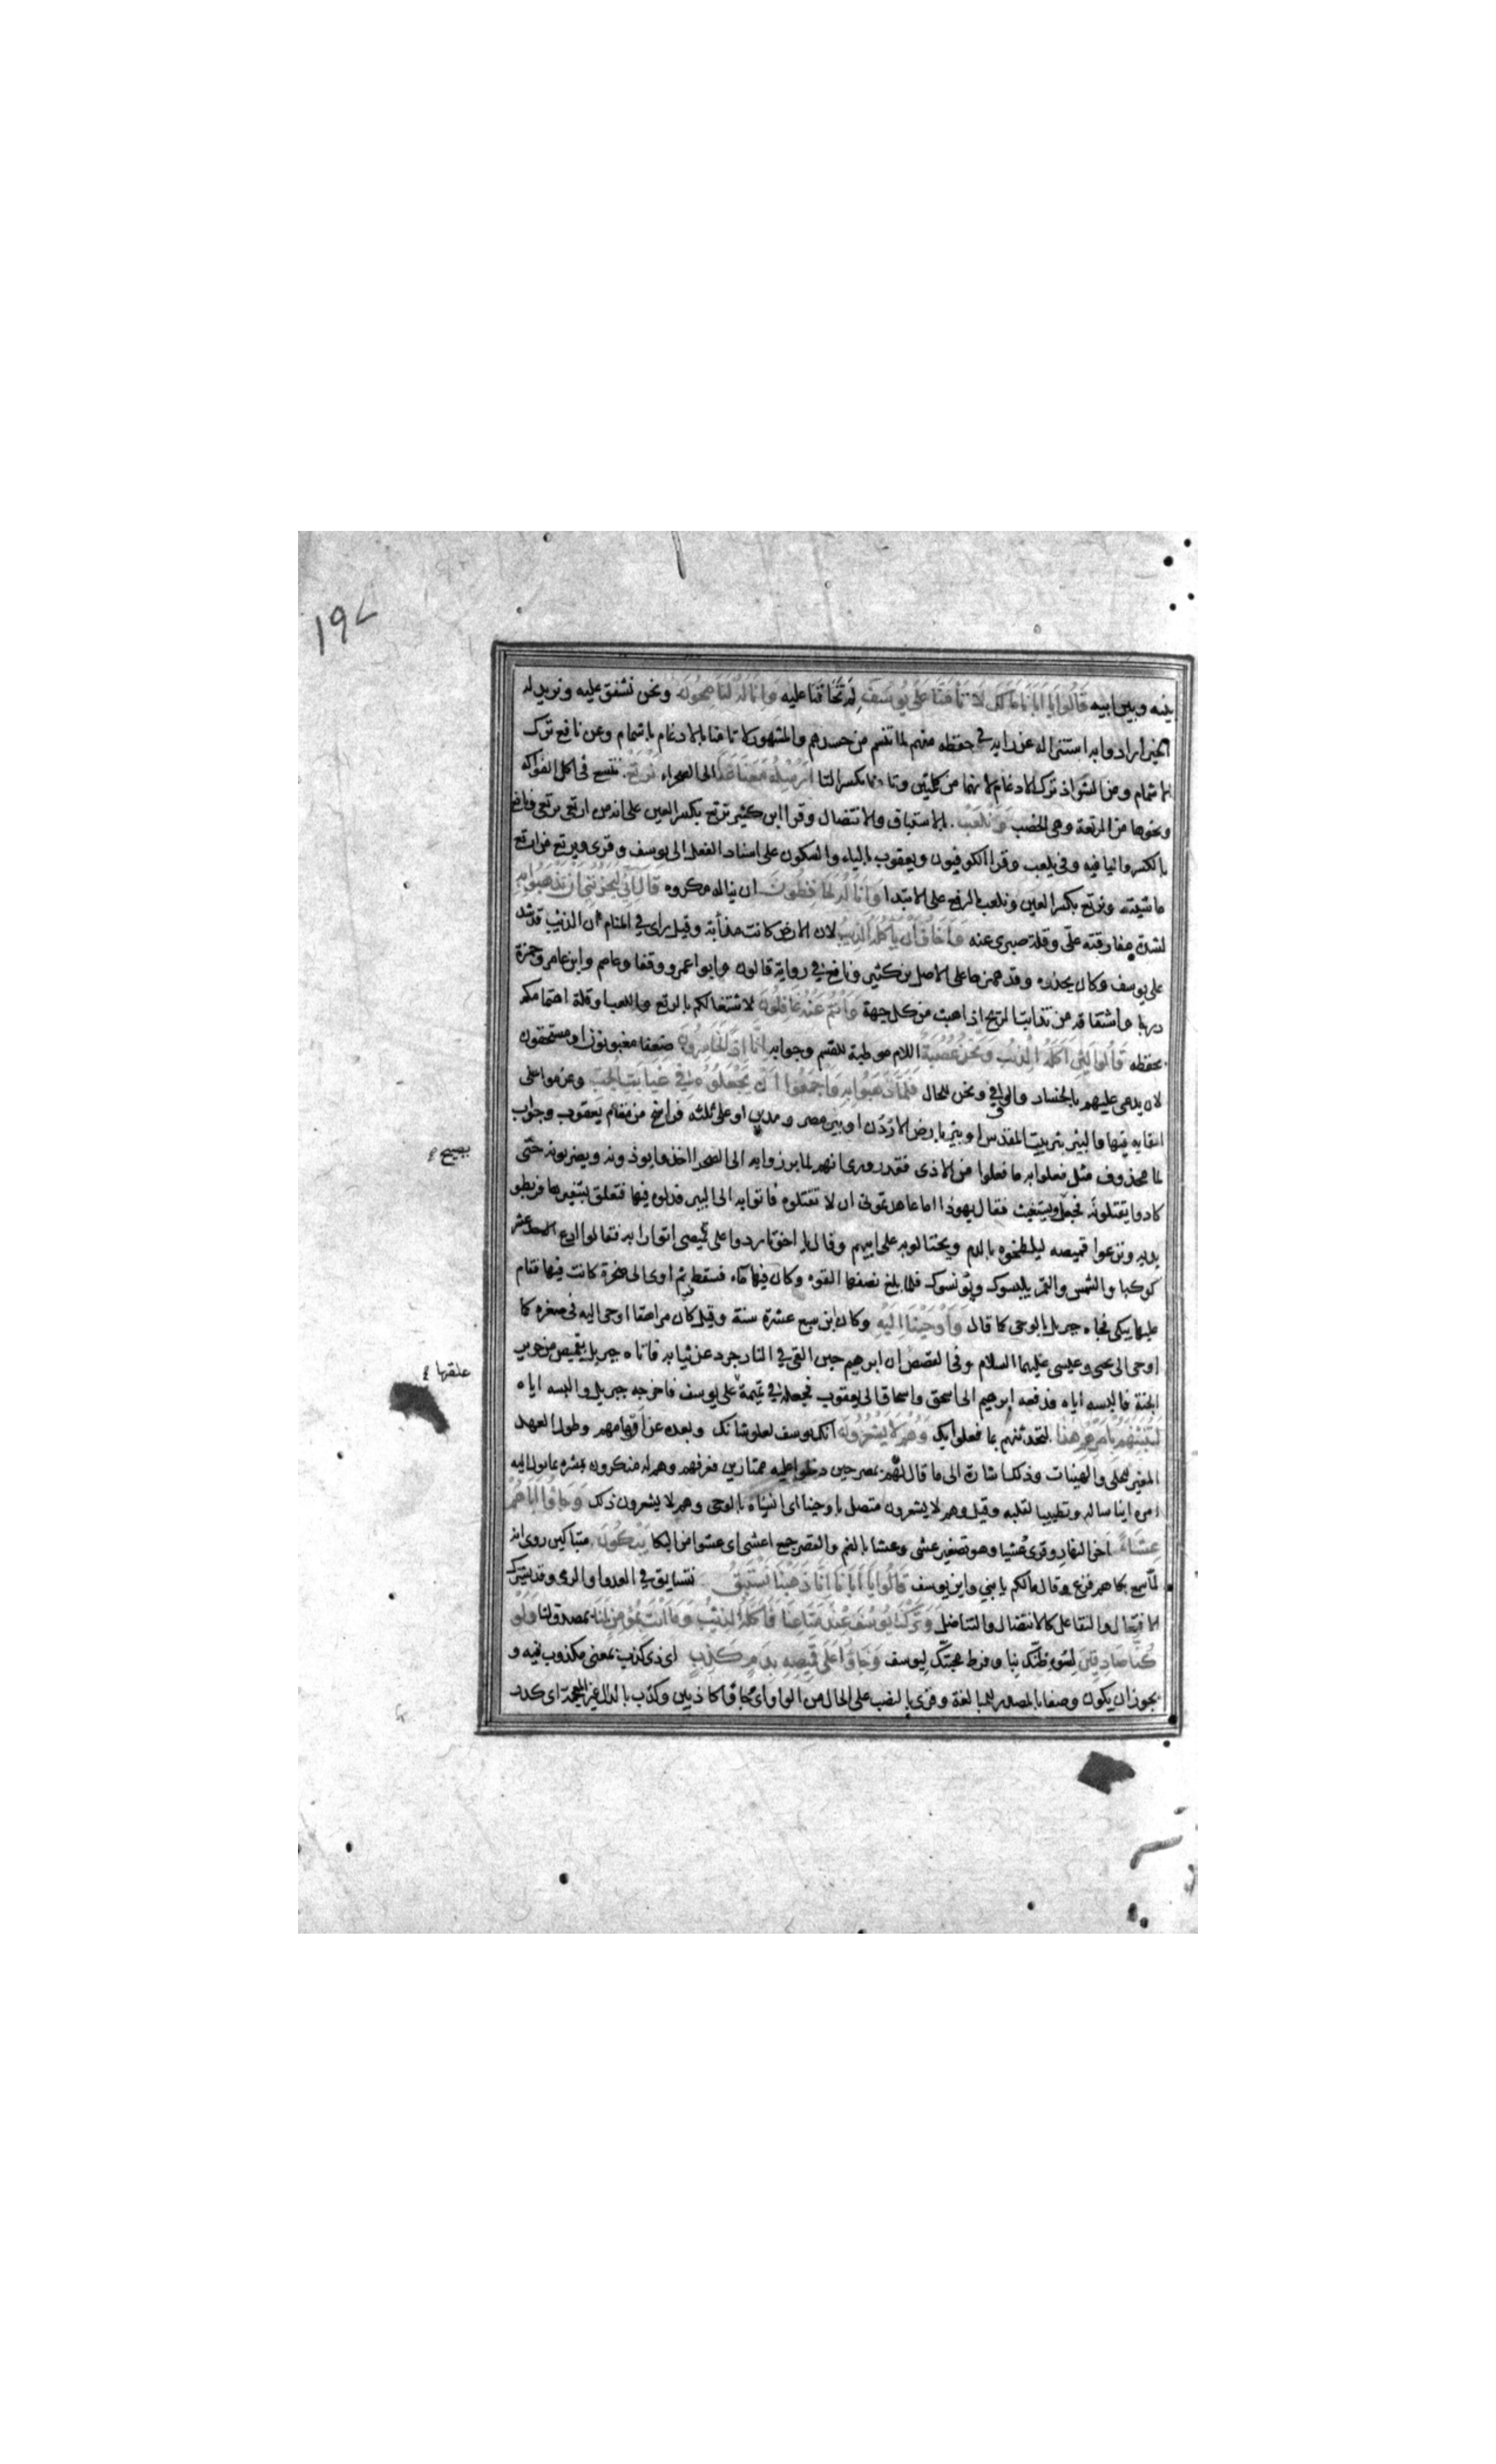 ١٩٧
بينه وبين ابيه قالوا يا ابانا مالك لا تأمنا على يوسف لم تخافنا عليه وانا له لناصحون ونحن نشفق عليه ونريد له
الخير ارادوا به استنزاله عن رايه في حفظه منهم لما تنسم من حسدهم والمشهور لا تامنا بالادغام باشمام وعن نافع ترك
الاشمام ومن الشواذ ترك الادغام لانهما من كلمتين وتيمنا بكسر التا ارسله معنا غدا الى الصحراء نرتع نتسع في اكل الفواكه
ونحوها من الرتعة وهي الخصب ونلعب بالاستباق والانتضال وقرا ابن كثير نرتع بكسر العين على انه من ارتعى يرتعي ونافع
بالكسر واليا فيه وفي يلعب وقرا الكوفيون ويعقوب بالياء والسكون على اسناد الفعل الى يوسف وقرى ويرتع من ارتع
ماشيته ونرتع بكسر العين ونلعب بالرفع على الابتدا وانا له لحافظون ان يناله مكروه قال اني ليحزنني ان تذهبوا به
لشدة مفارقته على وقلة صبري عنه واخاف ان ياكله الذيب لان الارض كانت مذأبة وقيل راى في المنام ان الذئب قد شد
على يوسف وكان يحذره وقد همزها على الاصل بن كثير ونافع في رواية قالون وابو عمرو وقفا وعاصم وابن عامر وحمزة
درجا واشتقاقه من تذابت الريح اذا هبت من كل جهة وانتم عنه غافلون لاشتغالكم بالرتع واللعب او قلة اهتمامكم
بحفظه قالوا لئن اكله الذئب ونحن عصبة اللام موطية للقسم وجوابه انا اذا لخاسرون ضعفا مغبونون او مستحقون
لان يدعى عليهم بالخسار والواو في ونحن للحال فلما ذهبوا به واجمعوا ان يجعلوه في غيابت الجب وعزموا على
القايه فيها والبئر بئر بيت المقدس او بئر بارض الاردن او بين مصر ومدين او على ثلثة فراسخ من مقام يعقوب وجواب
لما محذوف مثل فعلوا به ما فعلوا من الاذى فقد روى انهم لما برزوا به الى الصحرا اخذوا يوذونه ويضربونه حتى
كادوا يقتلونه فجعل يستغيث فقال يهوذا اما عاهدتموني ان لا تقتلوه فاتوا به الى البير فدلوه فيها فتعلق بشفيرها فربطوا
يديه ونزعوا قميصه ليلطخوه بالدم ويحتالوا به على ابيهم وقال يا اخوتاه ردوا على قميصي اتوارا به فقالوا ادع الاحد عشر
كوكبا والشمس والقمر يلبسوك ويونسوك فلما بلغ نصفها القوه وكان فيها ماء فسقط ثم اوى الى صخرة كانت فيها فقام
عليها يبكي فجاه جبريل بالوحي كما قال واوحينا اليه وكان ابن سبع عشرة سنة وقيل كان مراهقا اوحى اليه في صغره كما
اوحى الى يحيى وعيسى عليهما السلام وفي القصص ان ابرهيم حين القي في النار جرد عن ثيابه فاتاه جبريل بقميص من حرير
الجنة فالبسه اياه فدفعه ابرهيم الى اسحق واسحاق الى يعقوب فجعله في تميمة على يوسف فاخرجه جبريل والبسه اياه
لتنبئنهم بامرهم هذا لتحدثنهم بما فعلوا بك وهم لا يشعرون انك يوسف لعلو شانك وبعده عن اوهامهم وطول العهد
المغير للحلى والهيئات وذلك اشارة الى ما قال لهم بمصر حين دخلوا عليه ممتارين فعرفهم وهم له منكرون بشره بما يول اليه
امره ايناسا له وتطييبا لقلبه وقيل وهم لا يشعرون متصل باوحينا اى انسناه بالوحي وهم لا يشعرون ذلك وجاؤا اباهم
عشاء اخر النهار وقرى عشيا وهو تصغير عشي وعشا بالضم والقصر جمع اعشى اى عشوا من البكا يبكون متباكين روى انه
لما سمع بكاهم فزع وقال مالكم يا بني واين يوسف قالوا يا ابانا انا ذهبنا نستبق نتسابق في العدو او الرمي وقد يشترك
الافتعال والتفاعل كالانتضال والتناضل وتركنا يوسف عند متاعنا فاكله الذئب وما انت بمؤمن لنا بمصدق لنا ولو
كنا صادقين لسوء ظنك بنا وفرط محبتك ليوسف وجاؤا على قميصه بدم كذب اى ذي كذب بمعنى مكذوب فيه و
يجوز ان يكون وصفا بالمصدر للمبالغة وقرى بالنصب على الحال من الواو اى جاؤا كاذبين وكدب بالدال غير المعجمة اى كدر
يصيح
علقها